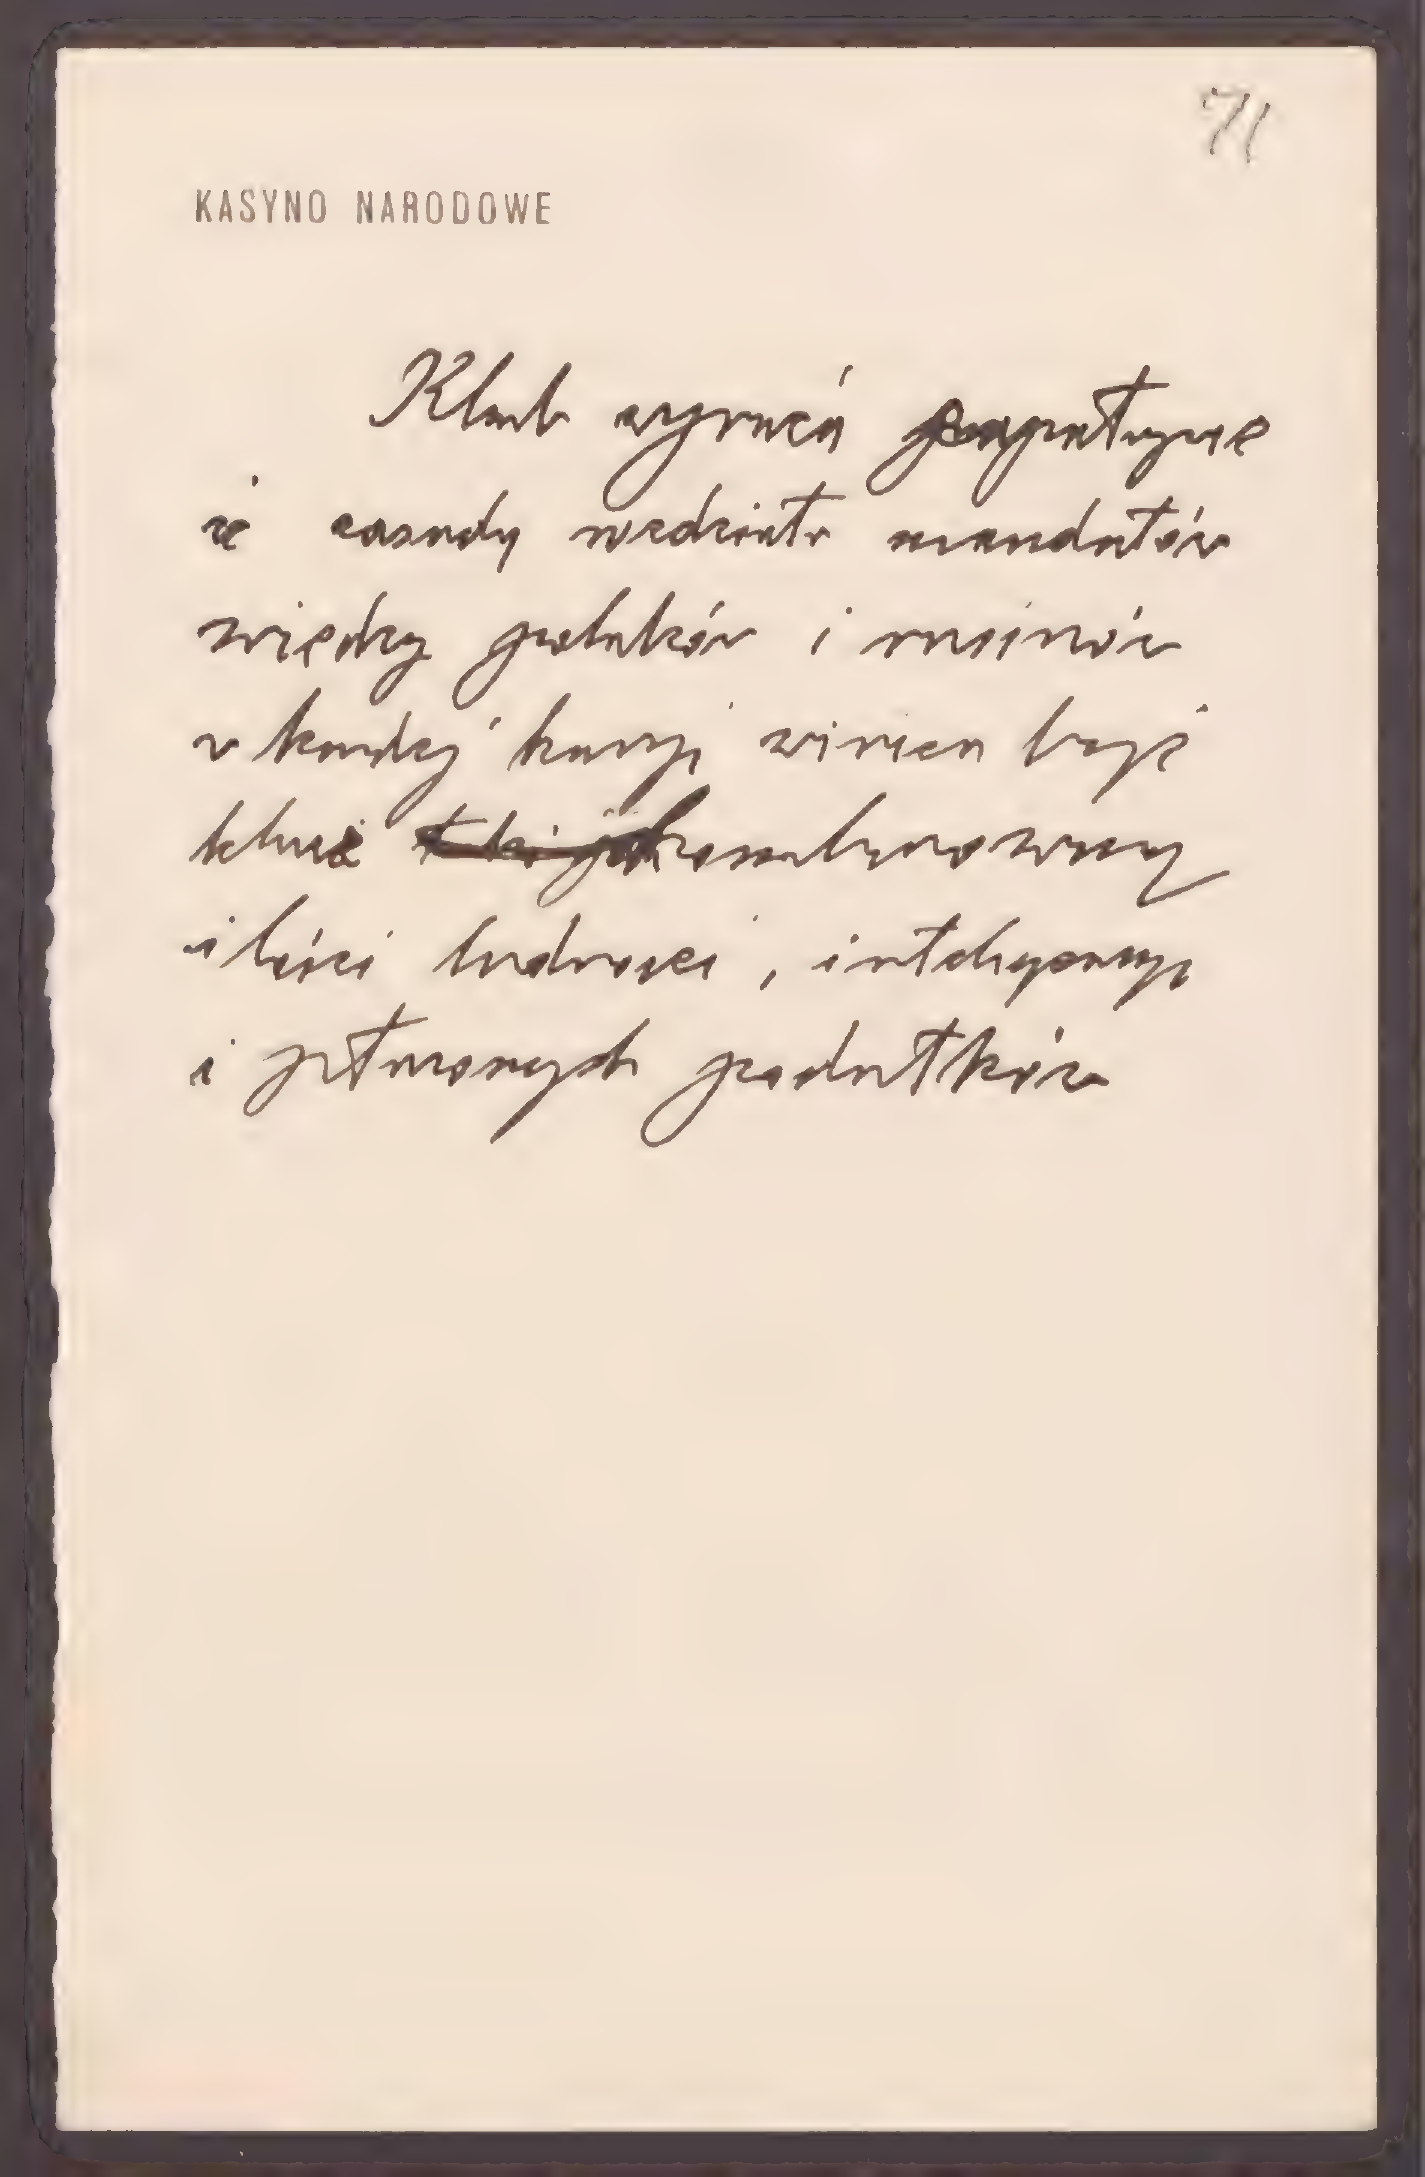 71
KASYNO NARODOWE
Klub wyraża zapatrywanie
iż zasady rozdziału mandatów
między polaków i rusinów
w każdej kuryi winien być
klucz kombinowany
ilości ludności, inteligencyi
i płaconych podatków